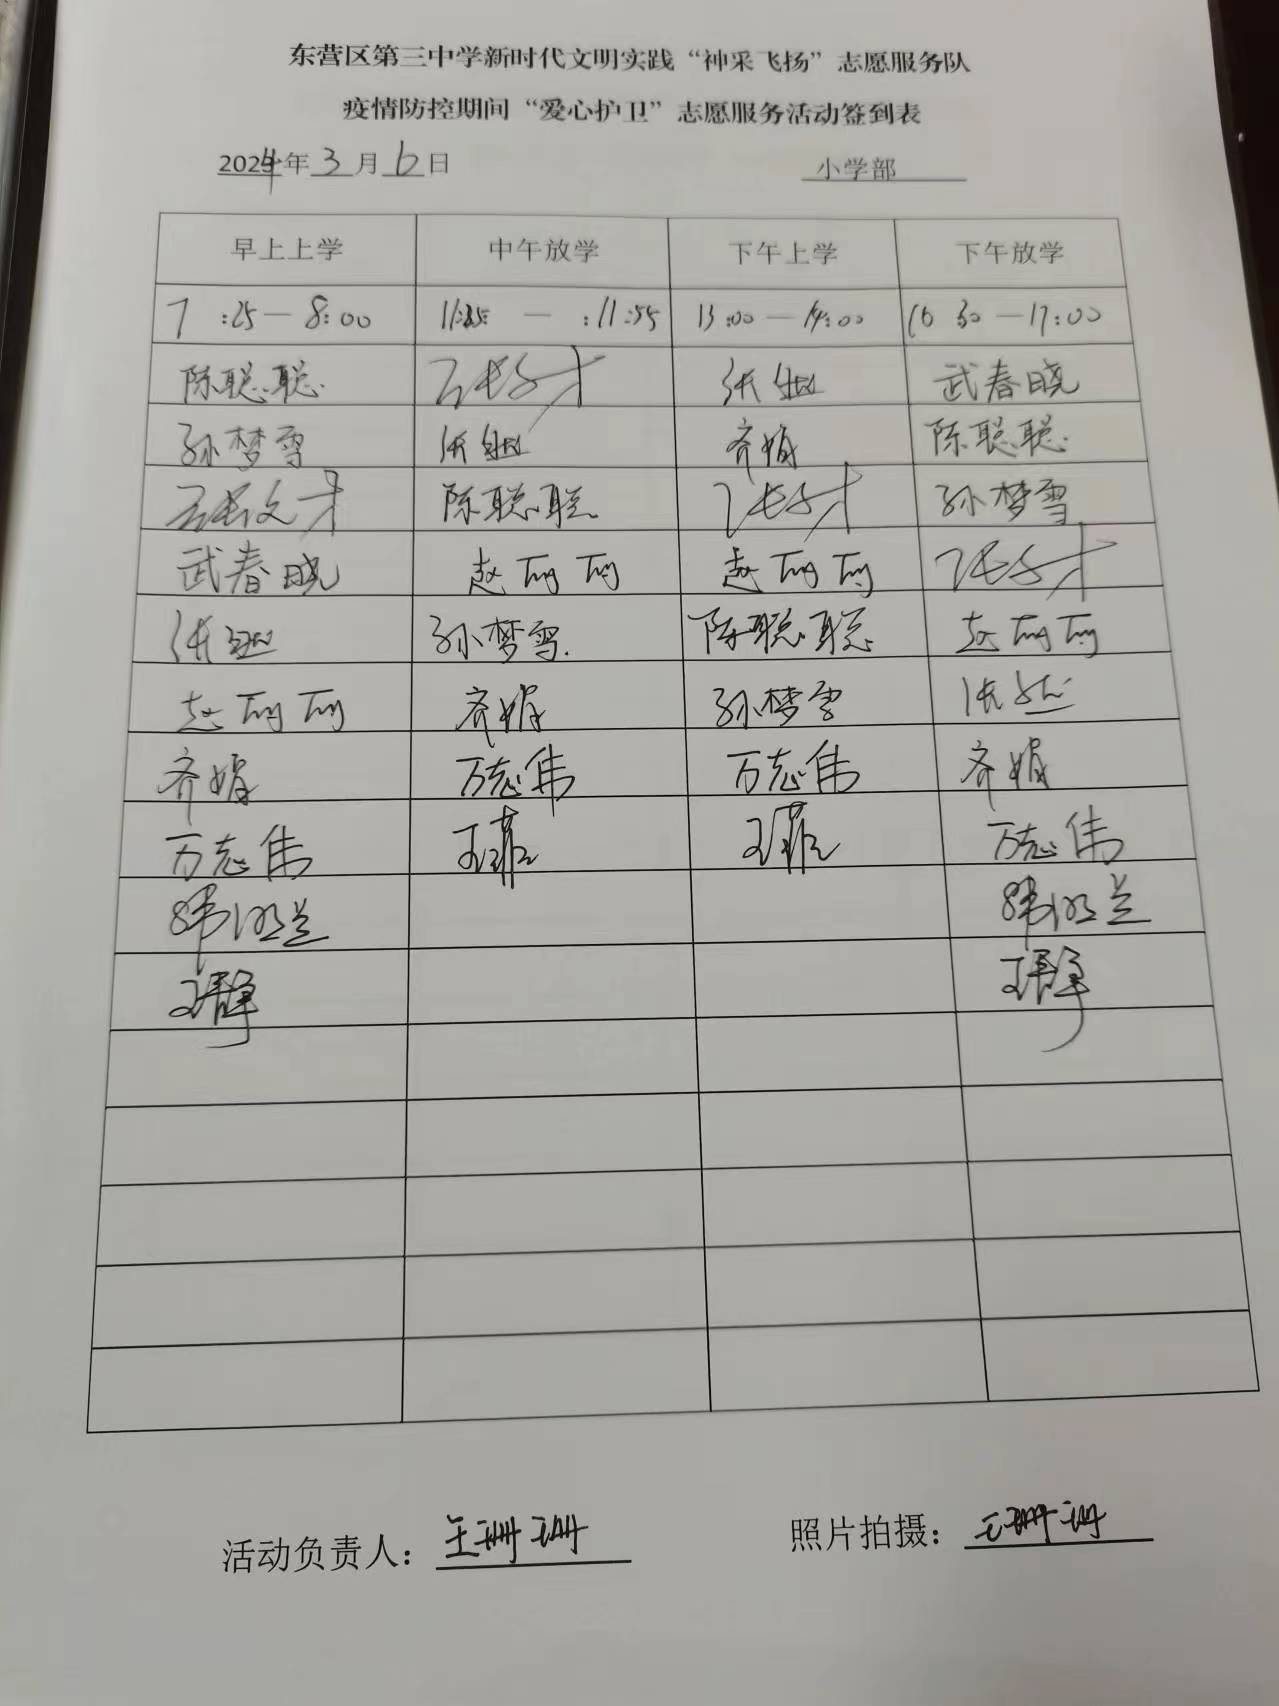 东营区第三中学新时代文明实践“神采飞扬”志愿服务队
疫情防控期间“爱心护卫”志愿服务活动签到表
2024年 3 月 6 日 小学部
早上上学 中午放学 下午上学 下午放学
7:25—8:00 11:25—:11:55 13:00—14:00 16 30—17:00
陈聪聪 张 武春晓
孙梦雪 张 齐娟 陈聪聪
陈聪聪 孙梦雪
武春晓 赵珂珂 赵珂珂
张 孙梦雪 陈聪聪 赵珂珂
赵珂珂 齐娟 孙梦雪 张
齐娟 万志伟 万志伟 齐娟
万志伟 王菲 王菲 万志伟
韩 兰 韩 兰
王静 王静
活动负责人：王珊珊 照片拍摄：王珊珊